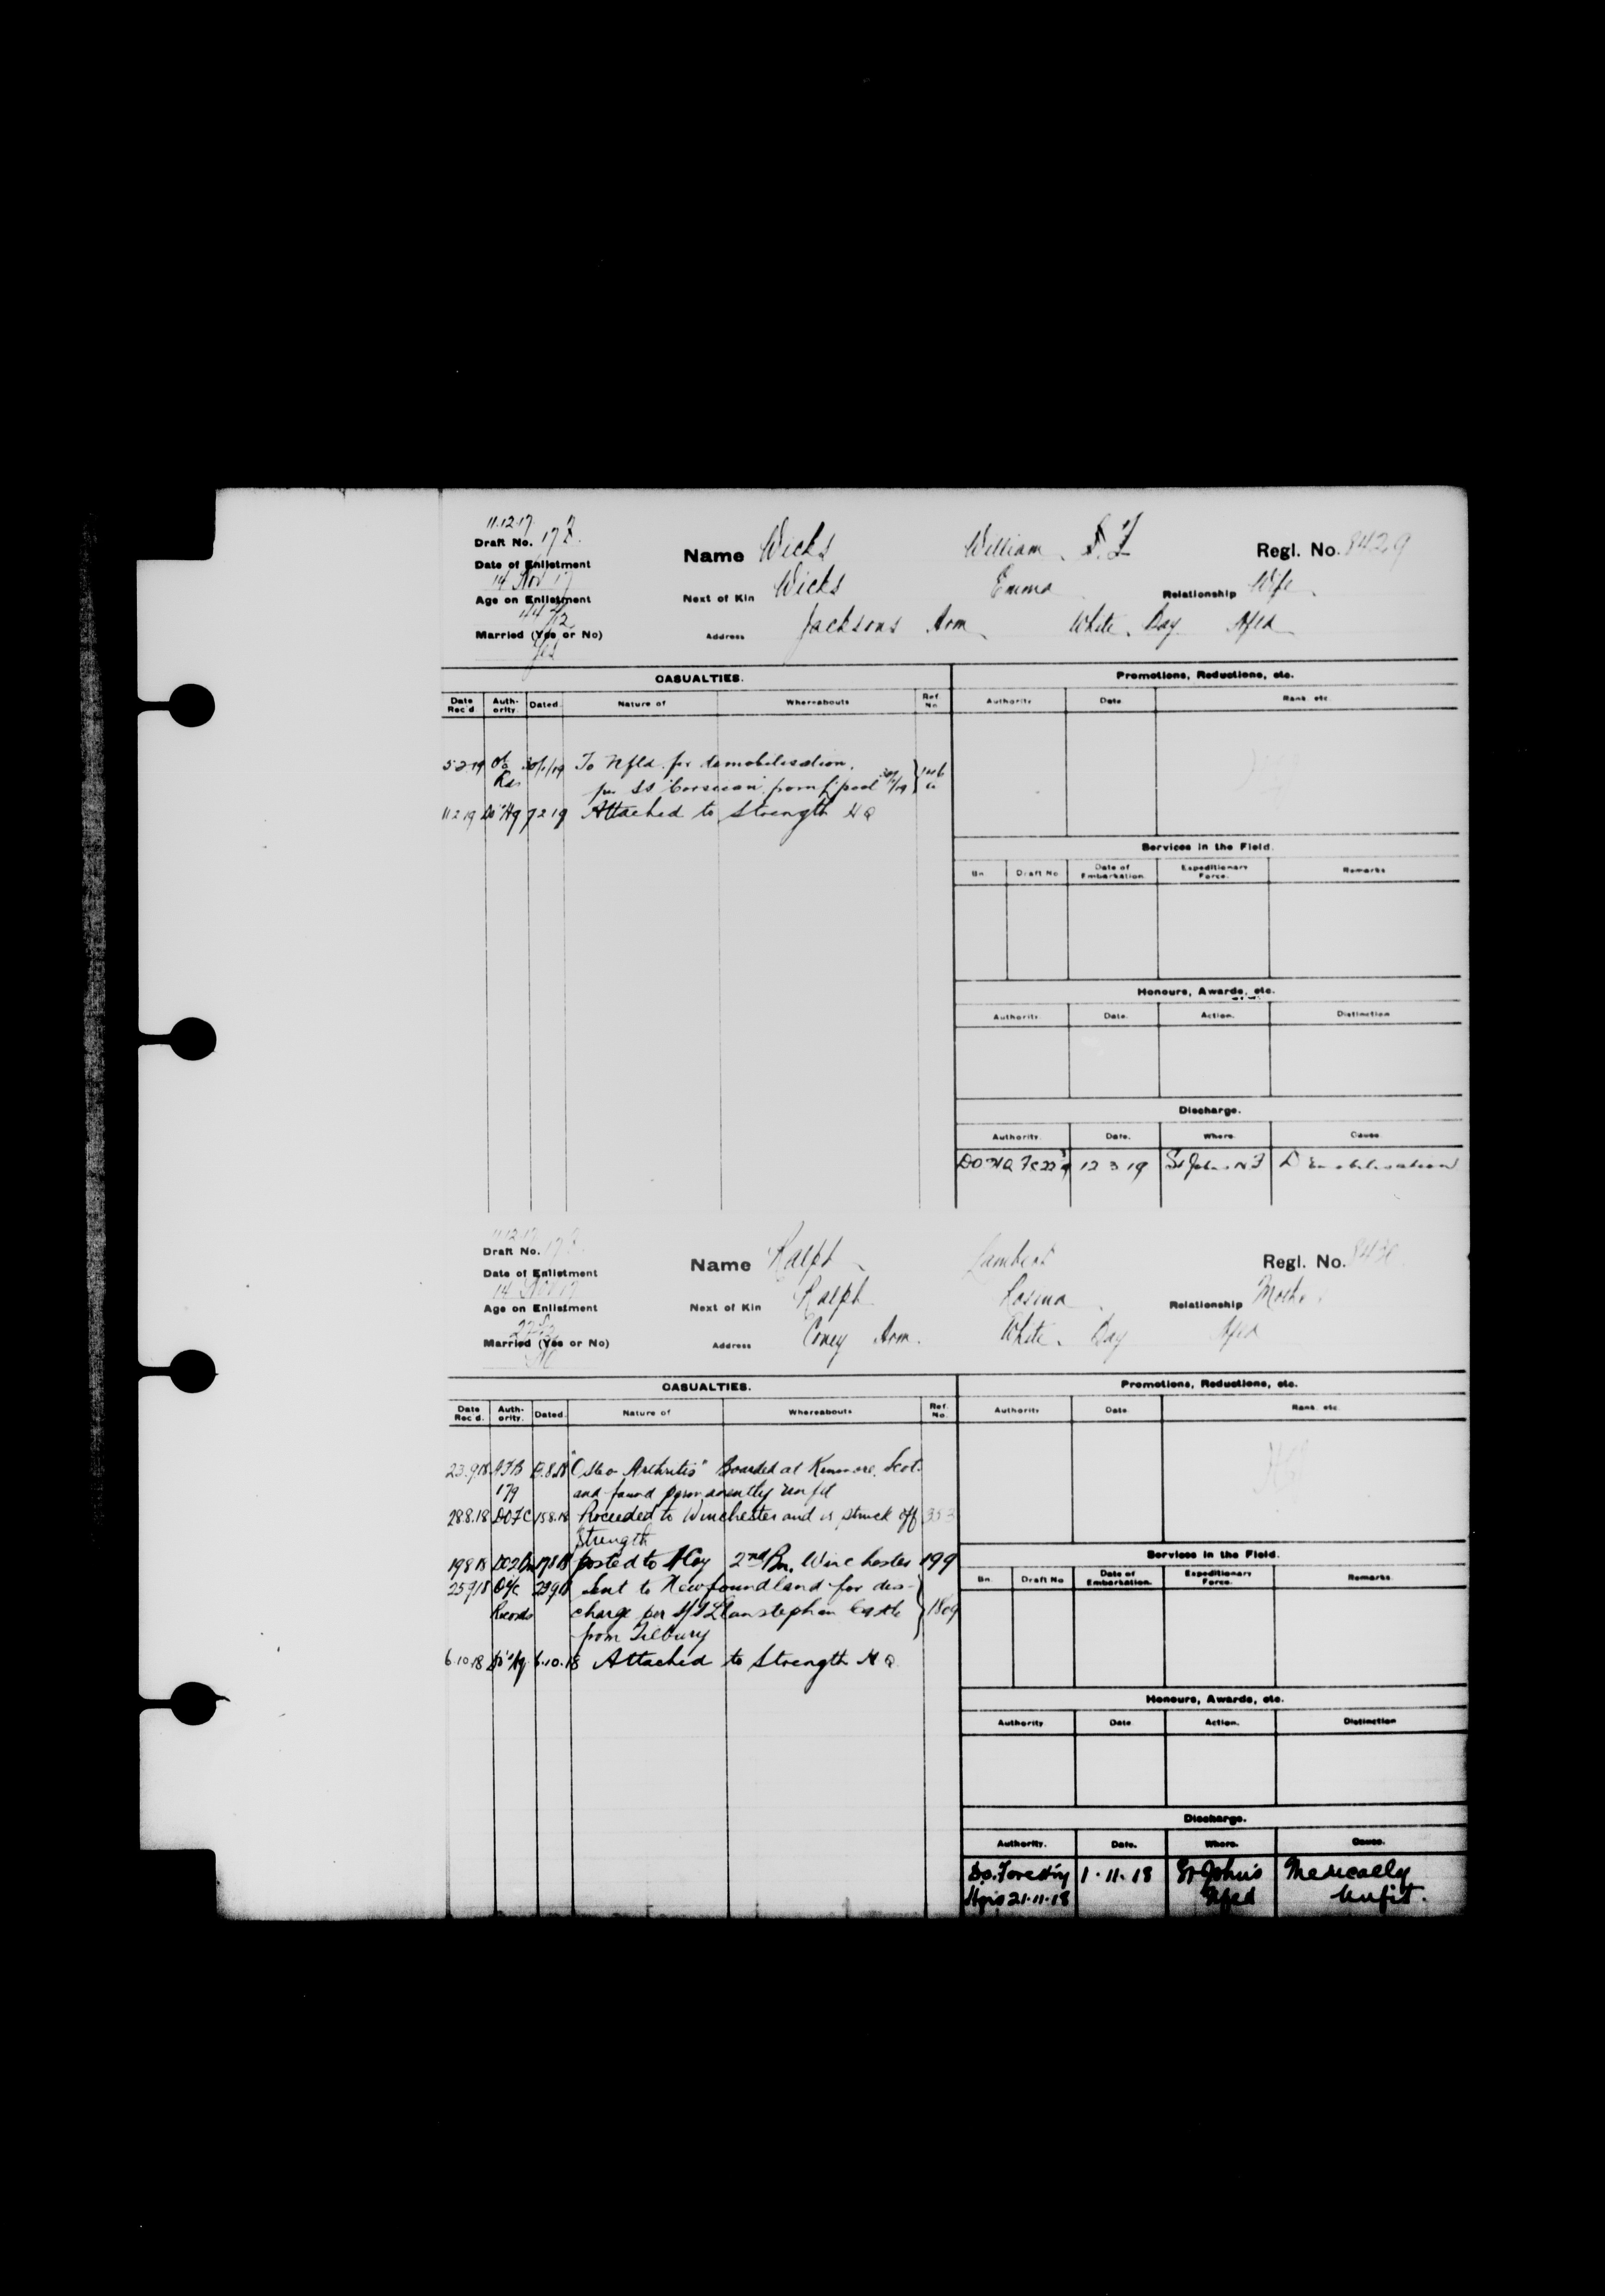 11.12.17
Draft No. 17 F.
Name Wicks William
Regl. No. 8429
Date of Enlistment
14 Nov 17
Next of Kin Wicks Emma Relationship Wife
Age on Enlistment
44
Married (Yes or No) Address Jacksons Arm White Bay Nfld
Yes
CASUALTIES. Promotions, Reductions, etc.
Date Rec'd Auth-ority. Dated. Nature of Whereabouts Ref No Authority Date Rank. etc.
5.2.19 30/1/19 To Nfld. for demobilisation.
per SS Corsican from L'pool 30/1/19
11 2 19 DO Hq 7 2 19 Attached to Strength H Q
Services in the Field.
Bn Draft No Date of Embarkation. Expeditionary Force. Remarks
Honours, Awards, etc.
Authority. Date. Action. Distinction
Discharge.
Authority. Date. Where. Cause
12 3 19 St Johns NF Demobilisation
11.12.17
Draft No. 17 F.
Name Ralph Lambert Regl. No. 8430
Date of Enlistment
14 Nov 17
Next of Kin Ralph Rosina Relationship Mother
Age on Enlistment
Married (Yes or No) Address Coney Arm. White Bay Nfld
No
CASUALTIES. Promotions, Reductions, etc.
Date Rec'd. Auth-ority. Dated. Nature of Whereabouts Ref. No. Authority Date. Rank. etc.
23.9.18 AFB "Osteo Arthritis" Boarded at Kenmore. Scot.
179 and found permanently unfit
28.8.18 DOFC 15.8.18 Proceeded to Winchester and is struck off 353
Strength
19 8 18 17 8 18 posted to H Coy 2nd Bn. Winchester 199
25 9 18 O i/c 23 9 18 Sent to Newfoundland for dis-
Records charge per S/S Llanstephan Castle 1809
from Tilbury
6.10.18 DO Hq 6.10.18 Attached to Strength H Q
Services in the Field.
Bn. Draft No Date of Embarkation. Expeditionary Force. Remarks
Honours, Awards, etc.
Authority Date Action. Distinction
Discharge.
Authority. Date. Where. Cause.
Do. Forestry 1.11.18 St John's Medically
Hqrs 21.11.18 Nfld Unfit.